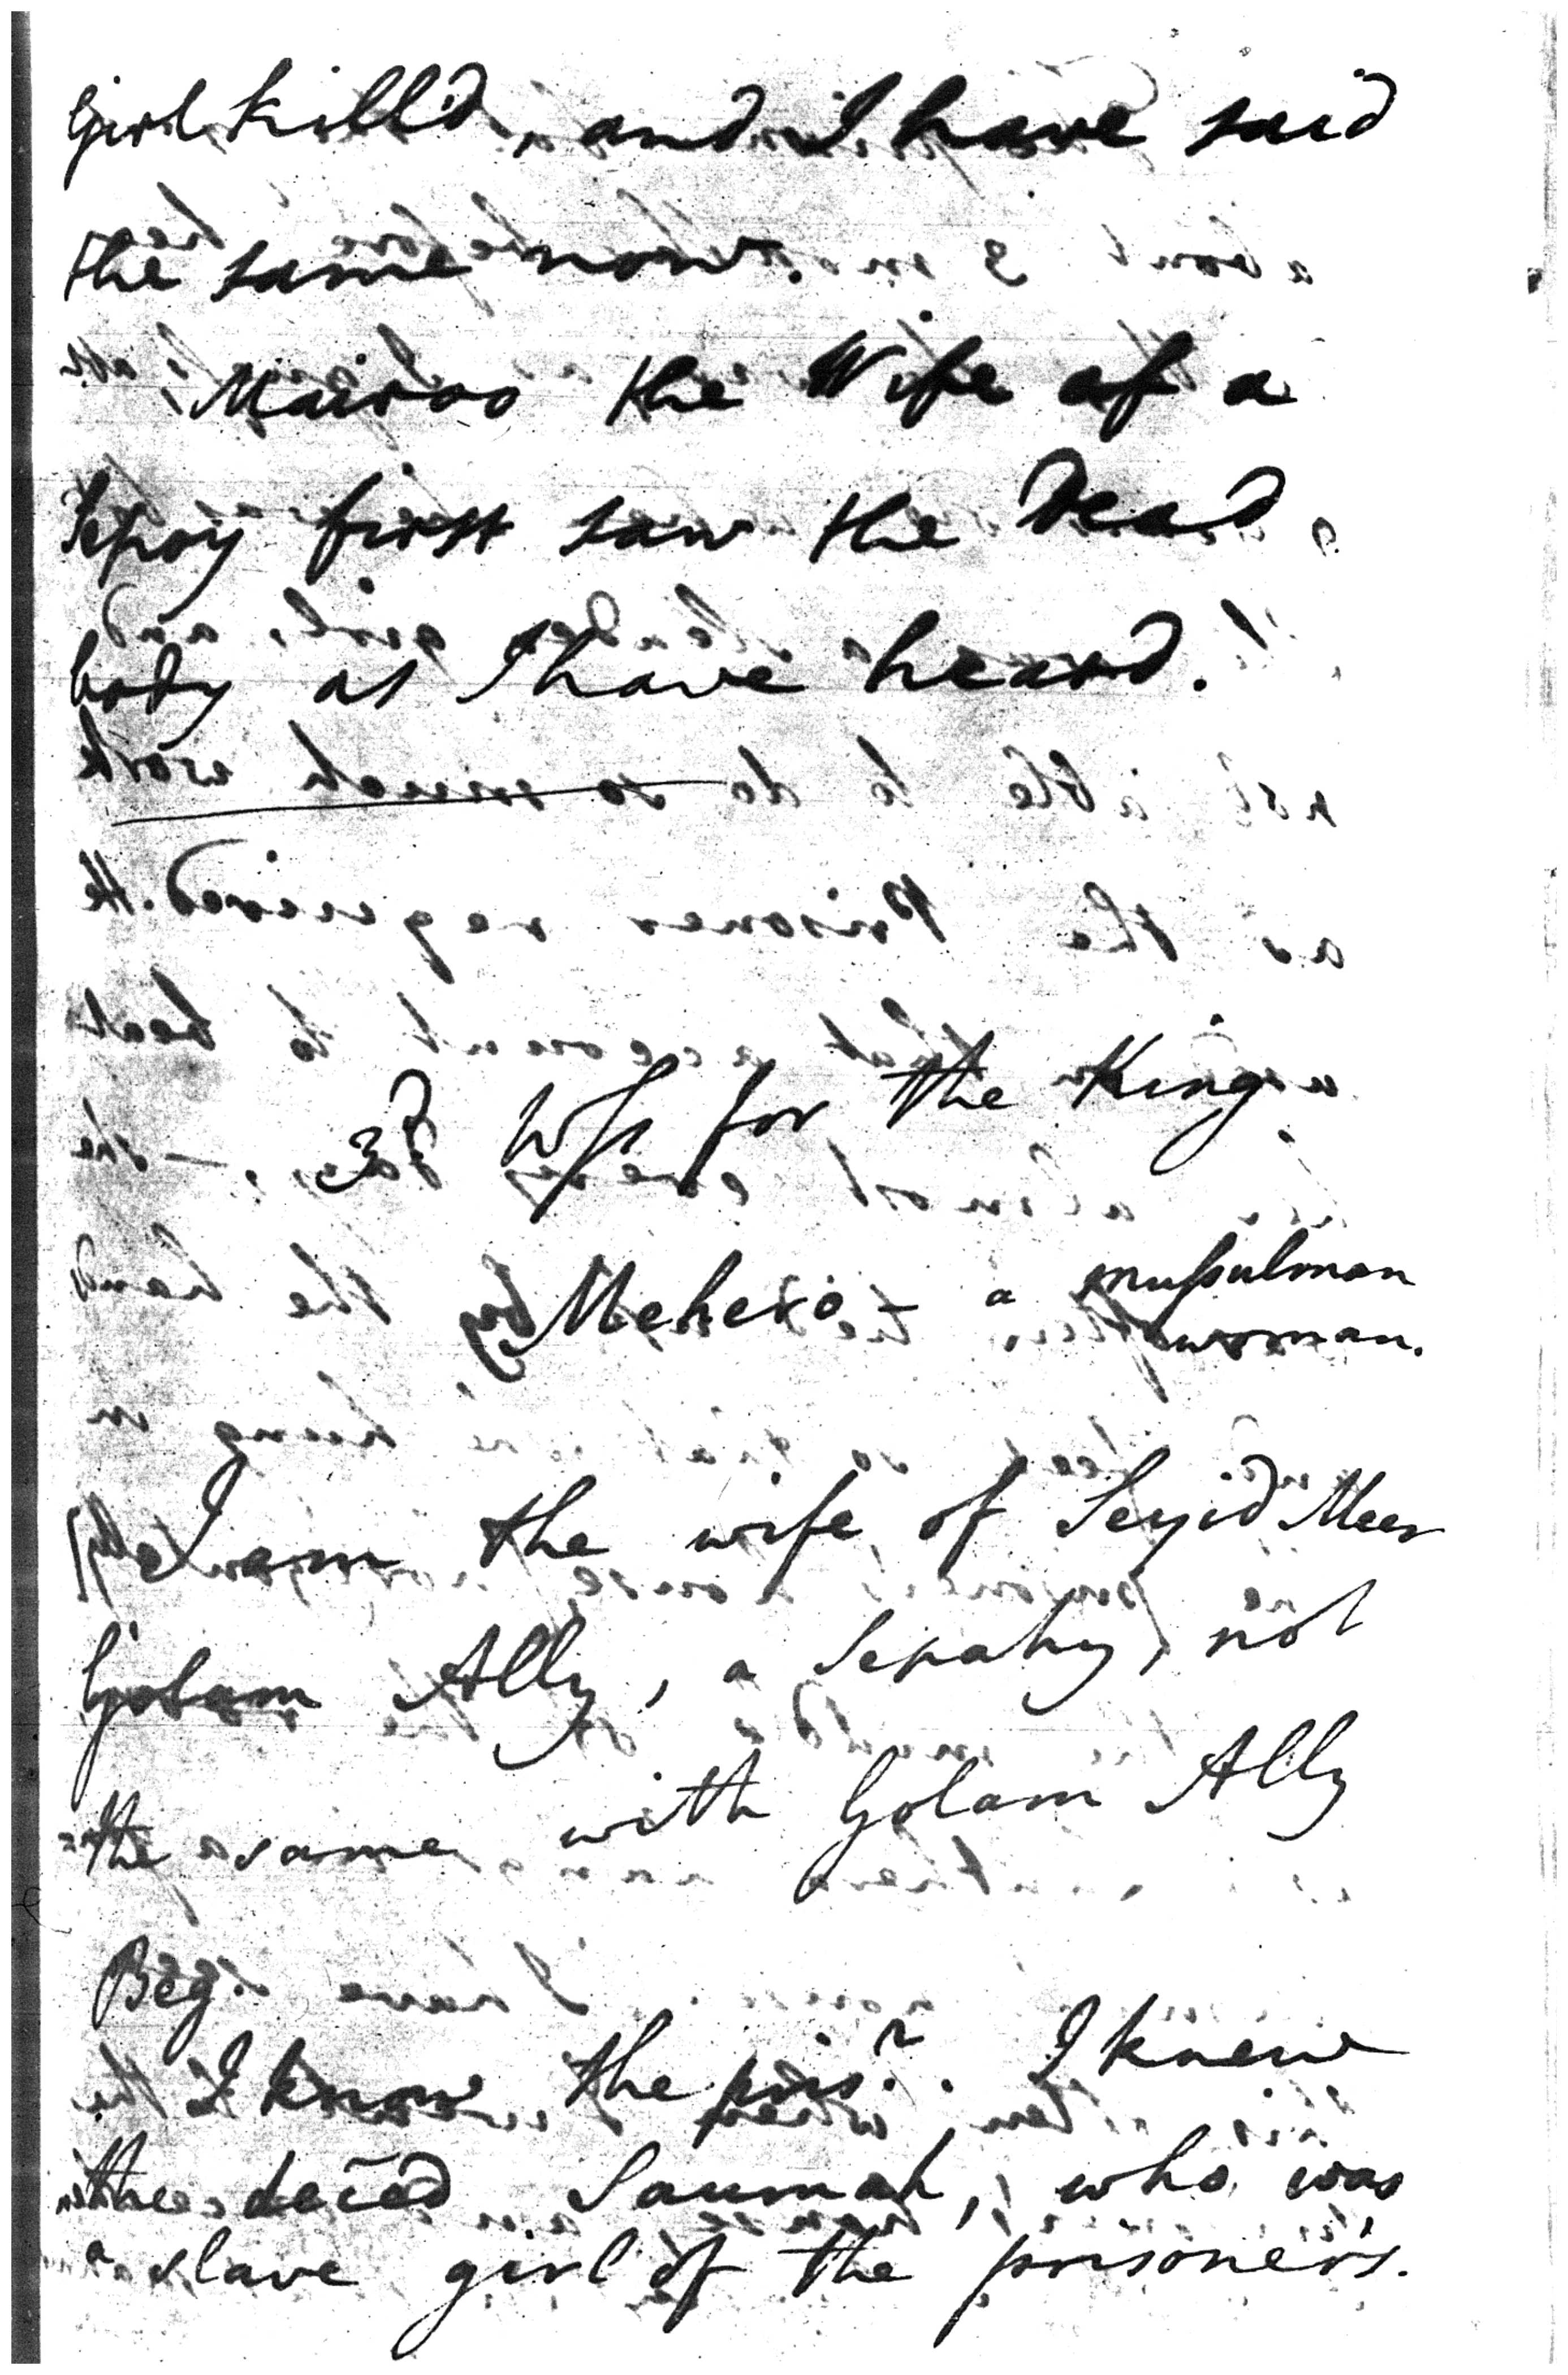 Girl kill'd, and I have said
the same now.
Mairoo the Wife of a
Sepoy first saw the Dead
body as I have heard.
3d Wss for the King
Mehero - a mussulman
woman.
I am the wife of Seyid Meer
Golam Ally, a Sepahy, not
the same with Golam Ally
Beg.
I know the prisr. I knew
the deced Saumah, who was
a slave girl of the prisoner's.